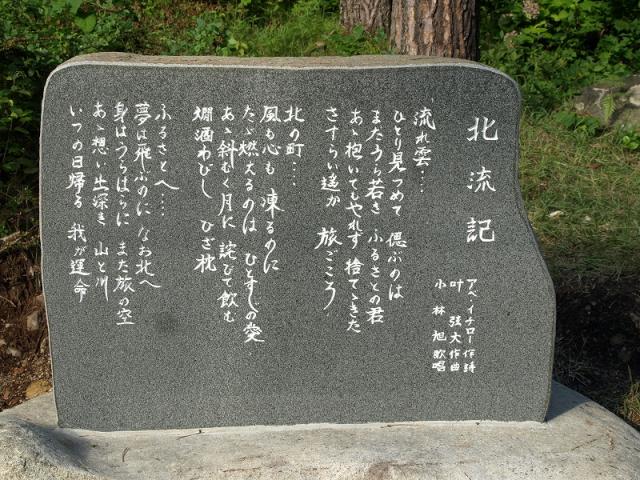 北流記
アベ・イチロー 作詩
叶 弦大 作曲
小林 旭 歌唱
流れ雲‥‥
ひとり見つめて 偲ぶのは
まだうら若き ふるさとの君
あゝ抱いてもやれず 捨てゝきた
さすらい遥か 旅ごころ
北の町‥‥
風も心も 凍るのに
たゞ燃えるのは ひとすじの愛
あゝ斜むく月に 詫びて飲む
燗酒わびし ひざ枕
ふるさとへ‥‥
夢は飛ぶのに なお北へ
身はうらはらに また旅の空
あゝ想い出深き 山と川
いつの日帰る 我が運命